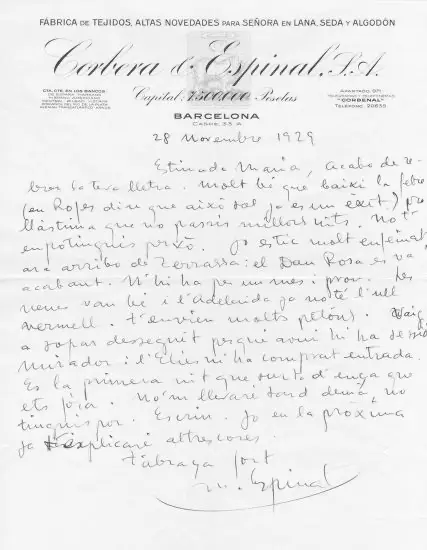 FÁBRICA DE TEJIDOS, ALTAS NOVEDADES PARA SEÑORA EN LANA, SEDA Y ALGODÓN
Corbera & Espinal, S.A.
CTA. CTE. EN LOS BANCOS
DE ESPAÑA MARSANS
HISPANO AMERICANO
CENTRAL BILBAO VIZCAYA
ESPAÑOL DEL RIO DE LA PLATA
ALEMAN TRANSATLANTICO ARNUS
Capital: 7.500.000 Pesetas
APARTADO, 971
TELEGRAMAS Y TELEFONEMAS
"CORBENAL"
TELÉFONO, 20635
BARCELONA
CASPE, 33 A
28 Novembre 1929
Estimada Maria, Acabo de re-
bre la teva lletra. Molt bé que baixi la febre
(en Roges diu que això sol ja es un èxit) però
llàstima que no passis millors nits. No t'
empotinguis però. Jo estic molt enfeinat
ara arribo de Terrassa: el Dan Rosa es va
acabant. N'hi ha per un mes i prou. Les
nenes van bé i l'Adelaida ja no té l'ull
vermell. T'envien molts petons. Vaig
a sopar desseguit perquè avui hi ha sessió
Mirador i l'Elies m'hi ha comprat entrada.
Es la primera nit que surto d'ença que
ets fóra. No'm llevaré tard demà, no
tinguis por. Escriu. Jo en la proxima
ja t'explicaré altres coses.
T'abraça fort
M. Espinal